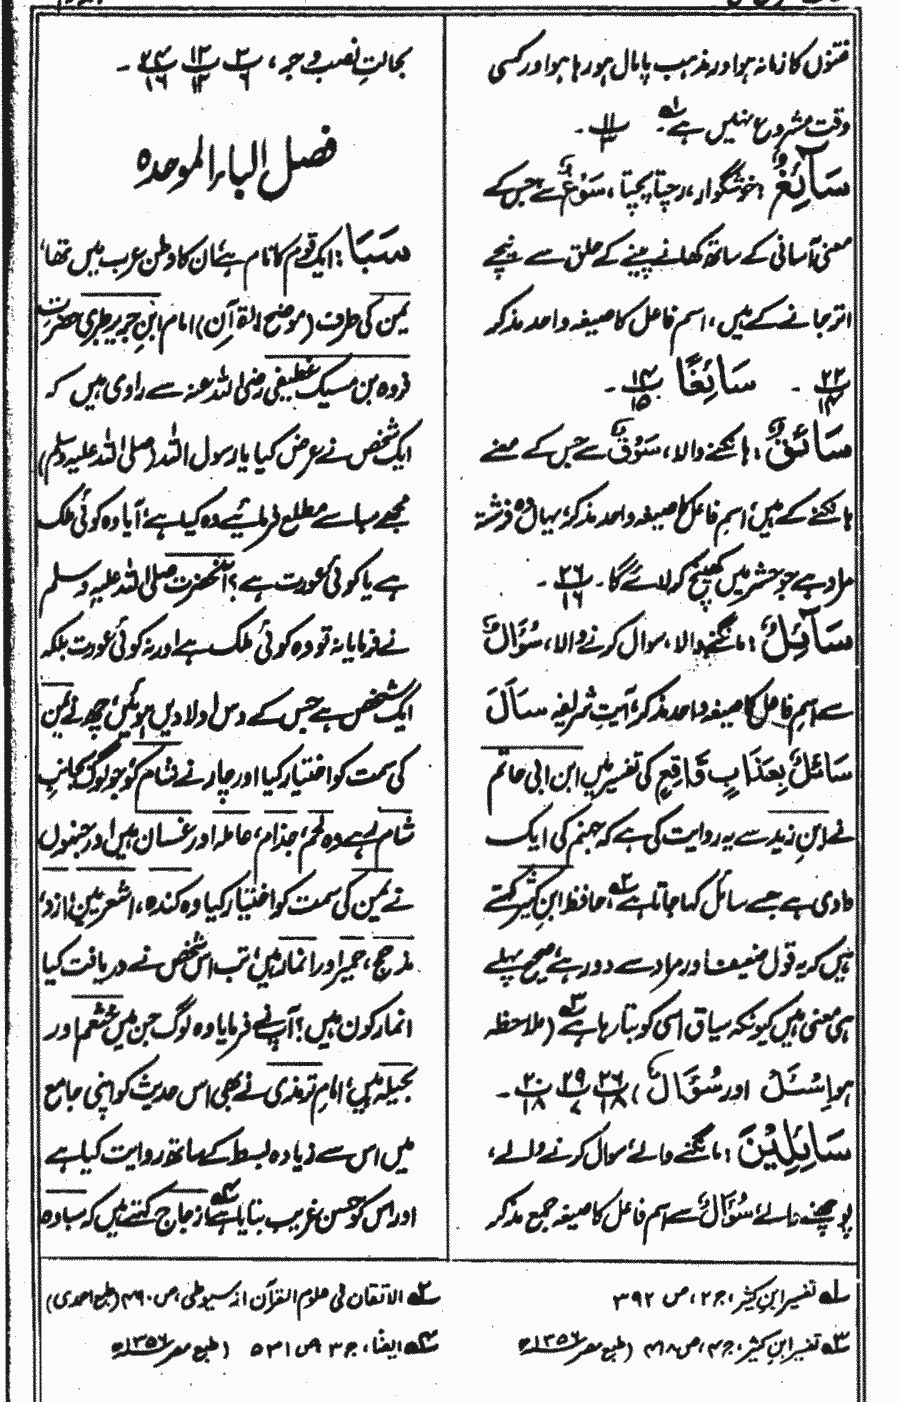 فتنوں کا زمانہ ہوا ور مذہب پامال ہو رہا ہوا ور کسی
وقت مشروع نہیں ہے ۔ ۱۱/۳ ۔
سَآئِغٌ : خوشگوار، رچتا پچتا، سَوْغٌ سے جس کے
معنی آسانی کے ساتھ کھانے پینے کے حلق سے نیچے
اتر جانے کے ہیں، اسم فاعل کا صیغہ واحد مذکر
۲۲/۱۴ ۔ سَائِغًا ۱۴/۱۵ ۔
سَائِقٌ : ہانکنے والا، سَوْقٌ سے جس کے معنے
ہانکنے کے ہیں، اسم فاعل کا صیغہ واحد مذکر، یہاں وہ فرشتہ
مراد ہے جو حشر میں کھینچ کر لائے گا ۔ ۲۶/۱۶ ۔
سَآئِلٌ : مانگنے والا، سوال کرنے والا، سُؤَالٌ
سے اسم فاعل کا صیغہ واحد مذکر، آیت شریفہ سَاَلَ
سَائِلٌ بِعَذَابٍ وَّاقِعٍ کی تفسیر میں ابن ابی حاتم
نے ابن زید سے یہ روایت کی ہے کہ جہنم کی ایک
وادی ہے جسے سائل کہا جاتا ہے ۲، حافظ ابن کثیر کہتے
ہیں کہ یہ قول ضعیف اور مراد سے دور ہے، صحیح پہلے
ہی معنی ہیں کیونکہ سیاق اسی کو بتا رہا ہے ۳ (ملاحظہ
ہو اِسْئَلْ اور سُؤَالٌ) ۲۶/۱۸ ۲۹/۷ ۲۰/۱۸ ۔
سَآئِلِيْنَ : مانگنے والے، سوال کرنے والے،
پوچھنے والے، سُؤَالٌ سے اسم فاعل کا صیغہ جمع مذکر
بحالتِ نصب و جر، ۲/۶ ۱۲/۱۲ ۲۴/۱۶ ۔
فصل الباء الموحدہ
سَبَا : ایک قوم کا نام ہے، ان کا وطن عرب میں تھا،
یمن کی طرف (موضح القرآن) امام ابن جریر طبری حضرت
فروہ بن مسیک غطیفی رضی اللہ عنہ سے راوی ہیں کہ
ایک شخص نے عرض کیا یا رسول اللہ (صلی اللہ علیہ وسلم)
مجھے سبا سے مطلع فرمائیے وہ کیا ہے، آیا وہ کوئی ملک
ہے یا کوئی عورت ہے؟ آنحضرت صلی اللہ علیہ وسلم
نے فرمایا نہ تو وہ کوئی ملک ہے اور نہ کوئی عورت بلکہ
ایک شخص ہے جس کے دس اولادیں ہوئیں، چھ نے یمن
کی سمت کو اختیار کیا اور چار نے شام کو، جو لوگ بجانب
شام رہے وہ لخم، جذام، عاملہ اور غسان ہیں اور جنہوں
نے یمن کی سمت کو اختیار کیا وہ کندہ، اشعریین، ازد،
مذحج، حمیر اور انمار ہیں، تب اس شخص نے دریافت کیا
انمار کون ہیں؟ آپ نے فرمایا وہ لوگ جن میں خثعم اور
بجیلہ ہیں، امام ترمذی نے بھی اس حدیث کو اپنی جامع
میں اس سے زیادہ بسط کے ساتھ روایت کیا ہے
اور اس کو حسن غریب بتایا ہے ۴ زجاج کہتے ہیں کہ سبا وہ
۱؎ تفسیر ابن کثیر، ج ۲، ص ۳۹۲
۳؎ تفسیر ابن کثیر، ج ۴، ص ۴۱۸ (طبع مصر ۱۳۵۶ھ)
۲؎ الاتقان فی علوم القرآن از سیوطی، ص ۴۶۰ (طبع احمدی)
۴؎ ایضًا، ج ۳ ص ۵۳۱ (طبع مصر ۱۳۵۶ھ)